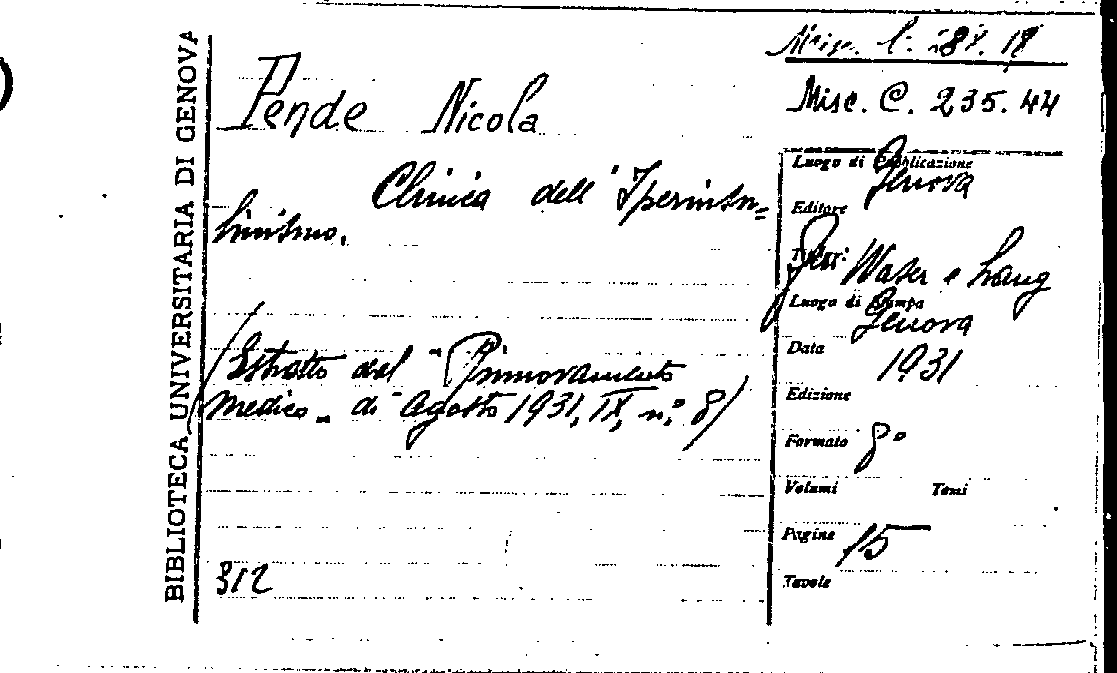 BIBLIOTECA UNIVERSITARIA DI GENOVA
Misc. C. 284. 18
Misc. C. 235. 44
Pende Nicola
Clinica dell'
(Estratto dal "Rinnovamento
medico„ di Agosto 1931, IX, n.° 8)
312
Luogo di Pubblicazione
Genova
Editore
Waser e Lang
Luogo di Stampa
Genova
Data 1931
Edizione
Formato 8°
Volumi Tomi
Pagine 15
Tavole